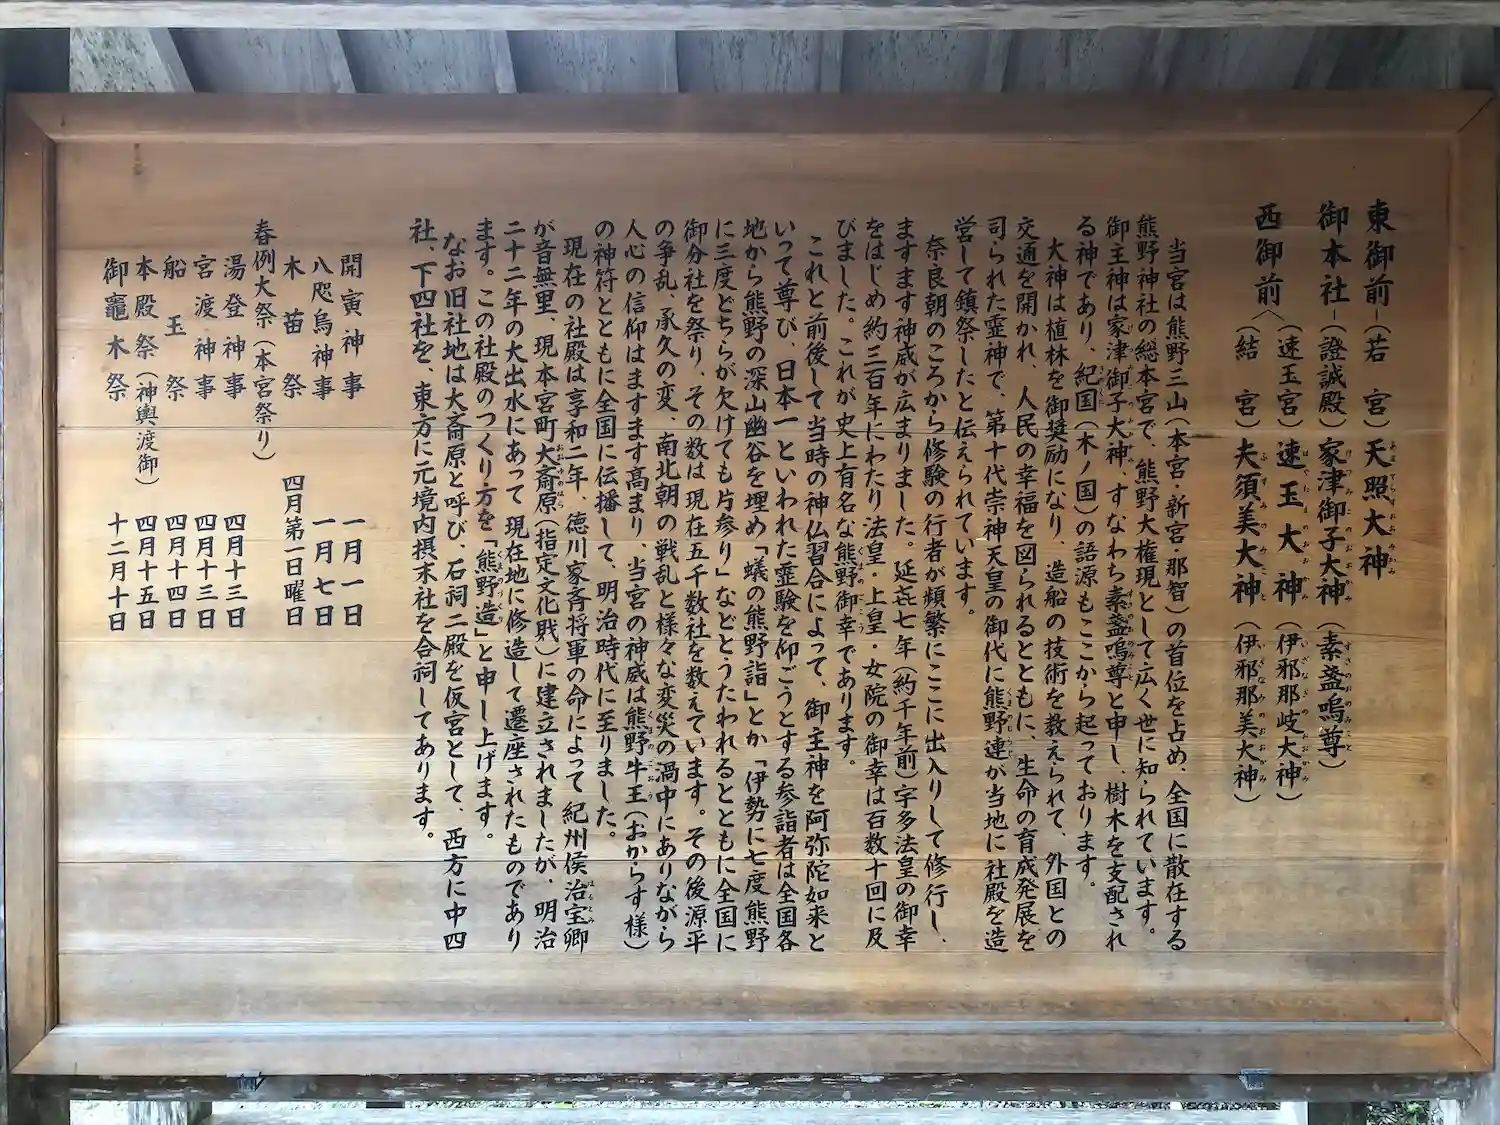 東御前―(若宮)天照大神
御本社―(證誠殿)家津御子大神(素盞嗚尊)
西御前〈(速玉宮)速玉大神(伊邪那岐大神)
(結宮)夫須美大神(伊邪那美大神)
当宮は熊野三山(本宮・新宮・那智)の首位を占め、全国に散在する
熊野神社の総本宮で、熊野大権現として広く世に知られています。
御主神は家津御子大神、すなわち素盞嗚尊と申し、樹木を支配され
る神であり、紀国(木ノ国)の語源もここから起っております。
大神は植林を御奨励になり、造船の技術を教えられて、外国との
交通を開かれ、人民の幸福を図られるとともに、生命の育成発展を
司られた霊神で、第十代崇神天皇の御代に熊野連が当地に社殿を造
営して鎮祭したと伝えられています。
奈良朝のころから修験の行者が頻繁にここに出入りして修行し、
ますます神威が広まりました。延㐂七年(約千年前)宇多法皇の御幸
をはじめ約三百年にわたり法皇・上皇・女院の御幸は百数十回に及
びました。これが史上有名な熊野御幸であります。
これと前後して当時の神仏習合によって、御主神を阿弥陀如来と
いって尊び、日本一といわれた霊験を仰ごうとする参詣者は全国各
地から熊野の深山幽谷を埋め「蟻の熊野詣」とか「伊勢に七度熊野
に三度どちらが欠けても片参り」などとうたわれるとともに全国に
御分社を祭り、その数は現在五千数社を数えています。その後源平
の争乱、承久の変、南北朝の戦乱と様々な変災の渦中にありながら
人心の信仰はますます高まり、当宮の神威は熊野牛王(おからす様)
の神符とともに全国に伝播して、明治時代に至りました。
現在の社殿は享和二年、徳川家斉将軍の命によって紀州侯治宝卿
が音無里、現本宮町大斎原(指定文化財)に建立されましたが、明治
二十二年の大出水にあって現在地に修造して遷座されたものであり
ます。この社殿のつくり方を「熊野造」と申し上げます。
なお旧社地は大斎原と呼び、石祠二殿を仮宮として、西方に中四
社、下四社を、東方に元境内摂末社を合祠してあります。
開寅神事 一月一日
八咫烏神事 一月七日
木苗祭 四月第一日曜日
春、例大祭(本宮祭り)
湯登神事 四月十三日
宮渡神事 四月十三日
船玉祭 四月十四日
本殿祭(神輿渡御) 四月十五日
御竈木祭 十二月十日